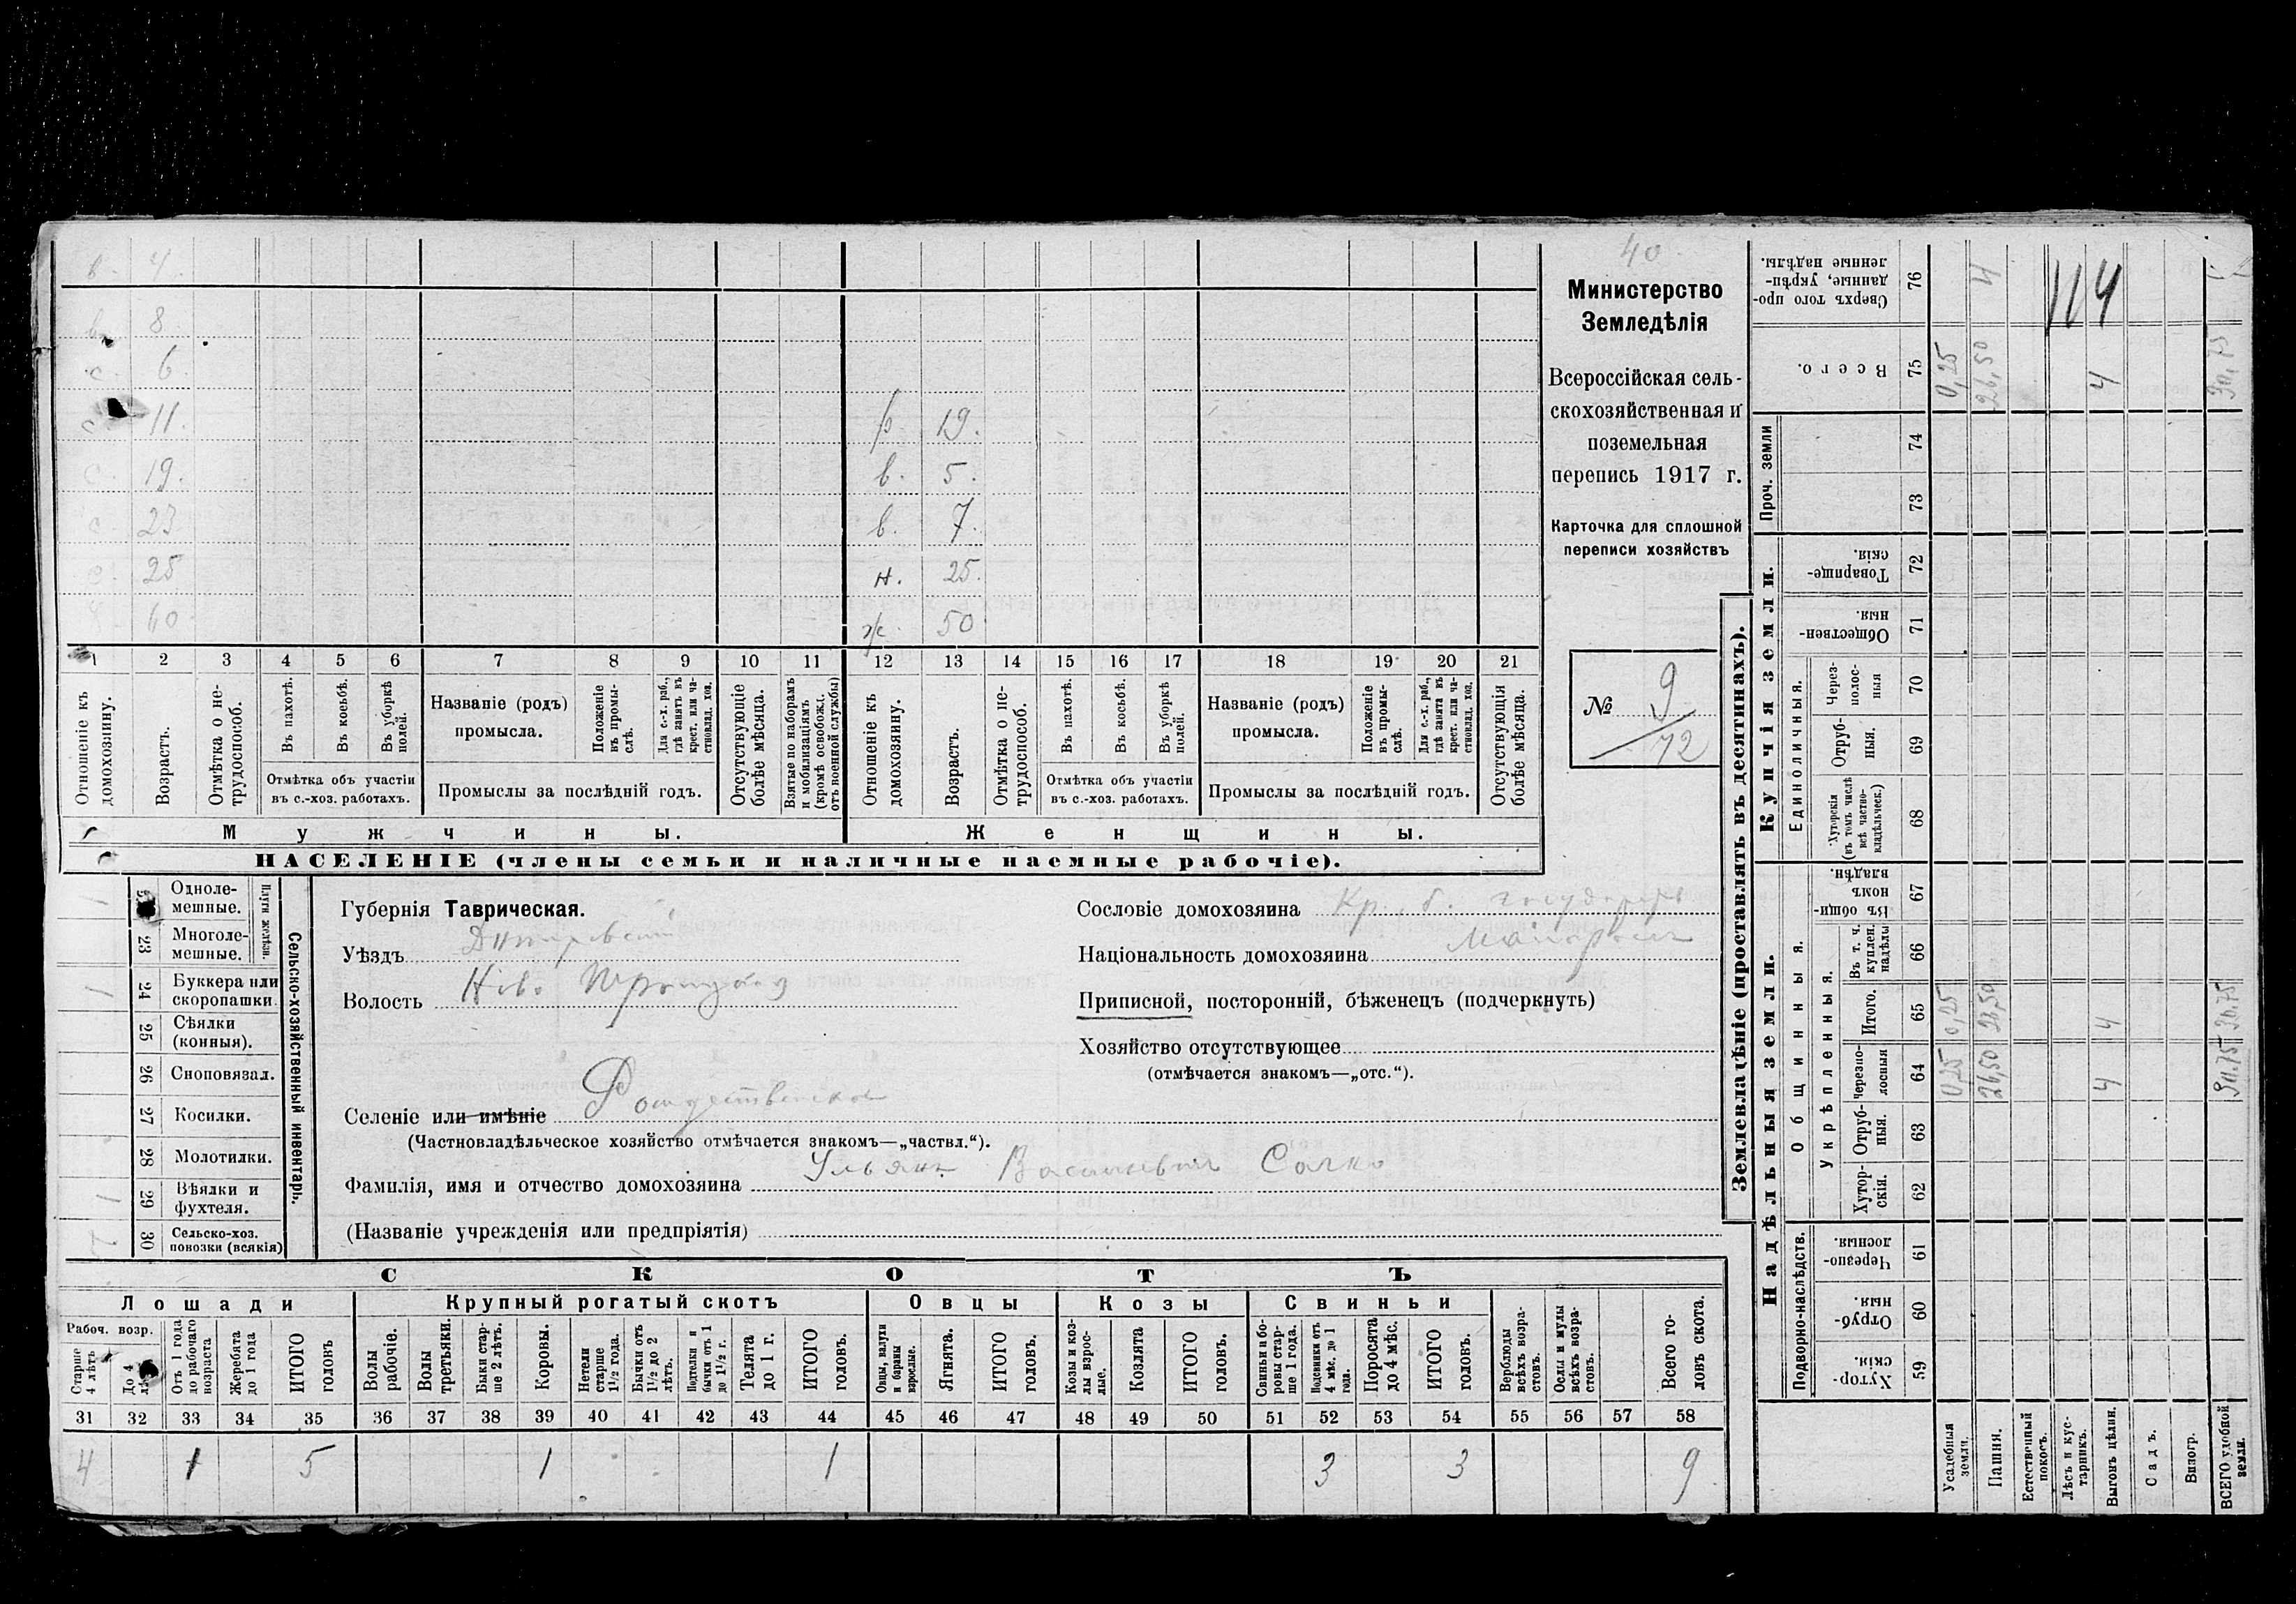 40
Министерство
Земледѣлія
Всероссійская сель-
скохозяйственная и
поземельная
перепись 1917 г.
Карточка для сплошной
переписи хозяйствъ
№ 9
72
в. 4.
в. 8
с. 6.
с. 11.
с. 19.
с. 23
с. 25
60
р. 19.
в. 5.
в. 7.
н. 25.
ж. 50
1 2 3 4 5 6 7 8 9 10 11 12 13 14 15 16 17 18 19 20 21
Отношеніе къ домохозяину.
Возрастъ.
Отмѣтка о не-трудоспособ.
Въ пахотѣ.
Въ косьбѣ.
Въ уборкѣ полей.
Отмѣтка объ участіи
въ с.-хоз. работахъ.
Названіе (родъ)
промысла.
Положеніе въ промы-слѣ.
Для с.-х. раб., гдѣ занятъ въ крест. или ча-стновлад. хоз.
Промыслы за послѣдній годъ.
Отсутствующіе болѣе мѣсяца.
Взятые по наборамъ и мобилизаціямъ (кромѣ освобожд. отъ военной службы)
Отношеніе къ домохозяину.
Возрастъ.
Отмѣтка о не-трудоспособ.
Въ пахотѣ.
Въ косьбѣ.
Въ уборкѣ полей.
Отмѣтка объ участіи
въ с.-хоз. работахъ.
Названіе (родъ)
промысла.
Положеніе въ промы-слѣ.
Для с.-х. раб., гдѣ занята въ крест. или ча-стновлад. хоз.
Промыслы за послѣдній годъ.
Отсутствующія болѣе мѣсяца.
Мужчины.
Женщины.
НАСЕЛЕНІЕ (члены семьи и наличные наемные рабочіе).
Сельско-хозяйственный инвентарь.
Плуги желѣзн.
1 Одноле-мешные.
23 Многоле-мешные.
1 24 Буккера или скоропашки.
25 Сѣялки (конныя).
26 Сноповязал.
27 Косилки.
28 Молотилки.
1 29 Вѣялки и фухтеля.
30 Сельско-хоз. повозки (всякія)
Губернія Таврическая.
Уѣздъ Днѣпровскій
Волость Ново Троицкая
Селеніе или имѣніе Рождественское
(Частновладѣльческое хозяйство отмѣчается знакомъ—„частвл.“).
Фамилія, имя и отчество домохозяина Ульянъ Васильевичъ Салко
(Названіе учрежденія или предпріятія)
Сословіе домохозяина Кр. б. государств
Національность домохозяина Малоросъ
Приписной, посторонній, бѣженецъ (подчеркнуть)
Хозяйство отсутствующее
(отмѣчается знакомъ—„отс.“).
СКОТЪ
Лошади
Крупный рогатый скотъ
Овцы
Козы
Свиньи
Рабоч. возр.
Старше 4 лѣтъ
До 4 лѣтъ
Отъ 1 года до рабочаго возраста
Жеребята до 1 года
ИТОГО головъ
Волы рабочіе.
Волы третьяки.
Быки стар-ше 2 лѣтъ.
Коровы.
Нетели старше 1½ года.
Бычки отъ 1½ до 2 лѣтъ.
Подтелки и бычки отъ 1 до 1½ г.
Телята до 1 г.
ИТОГО головъ.
Овцы, валухи и бараны взрослые.
Ягнята.
ИТОГО головъ.
Козы и коз-лы взрос-лые.
Козлята
ИТОГО головъ.
Свиньи и бо-ровы стар-ше 1 года.
Подсвинки отъ 4 мѣс. до 1 года.
Поросята до 4 мѣс.
ИТОГО головъ.
Верблюды всѣхъ возра-стовъ.
Ослы и мулы всѣхъ возра-стовъ.
Всего го-ловъ скота.
31 32 33 34 35 36 37 38 39 40 41 42 43 44 45 46 47 48 49 50 51 52 53 54 55 56 57 58
4 1 5 1 1 3 3 9
Землевладѣніе (проставлять въ десятинахъ).
Надѣльныя земли.
Купчія земли.
Проч. земли
Подворно-наслѣдств.
Общинныя.
Укрѣпленныя.
Единоличныя.
59 Хутор-скія.
60 Отруб-ныя.
61 Черезпо-лосныя.
62 Хутор-скія.
63 Отруб-ныя.
64 Черезпо-лосныя
65 Итого.
66 Въ т. ч. куплен. надѣлы
67 Въ общин-номъ владѣн.
68 Хуторскія (въ томъ числѣ всѣ частно-владѣльческ.)
69 Отруб-ныя.
70 Через-полос-ныя
71 Обществен-ныя
72 Товарище-скія.
73
74
75 Всего.
76 Сверхъ того про-данные, укрѣп-ленные надѣлы.
Усадебныя земли. 0,25 0,25 0,25
Пашня. 26,50 26,50 26,50 4
Естественный покосъ.
Лѣсъ и кус-тарникъ.
Выгонъ цѣлин. 4 4 4
Садъ.
Виногр.
ВСЕГО удобной земли. 30.75 30.75 30,75
114